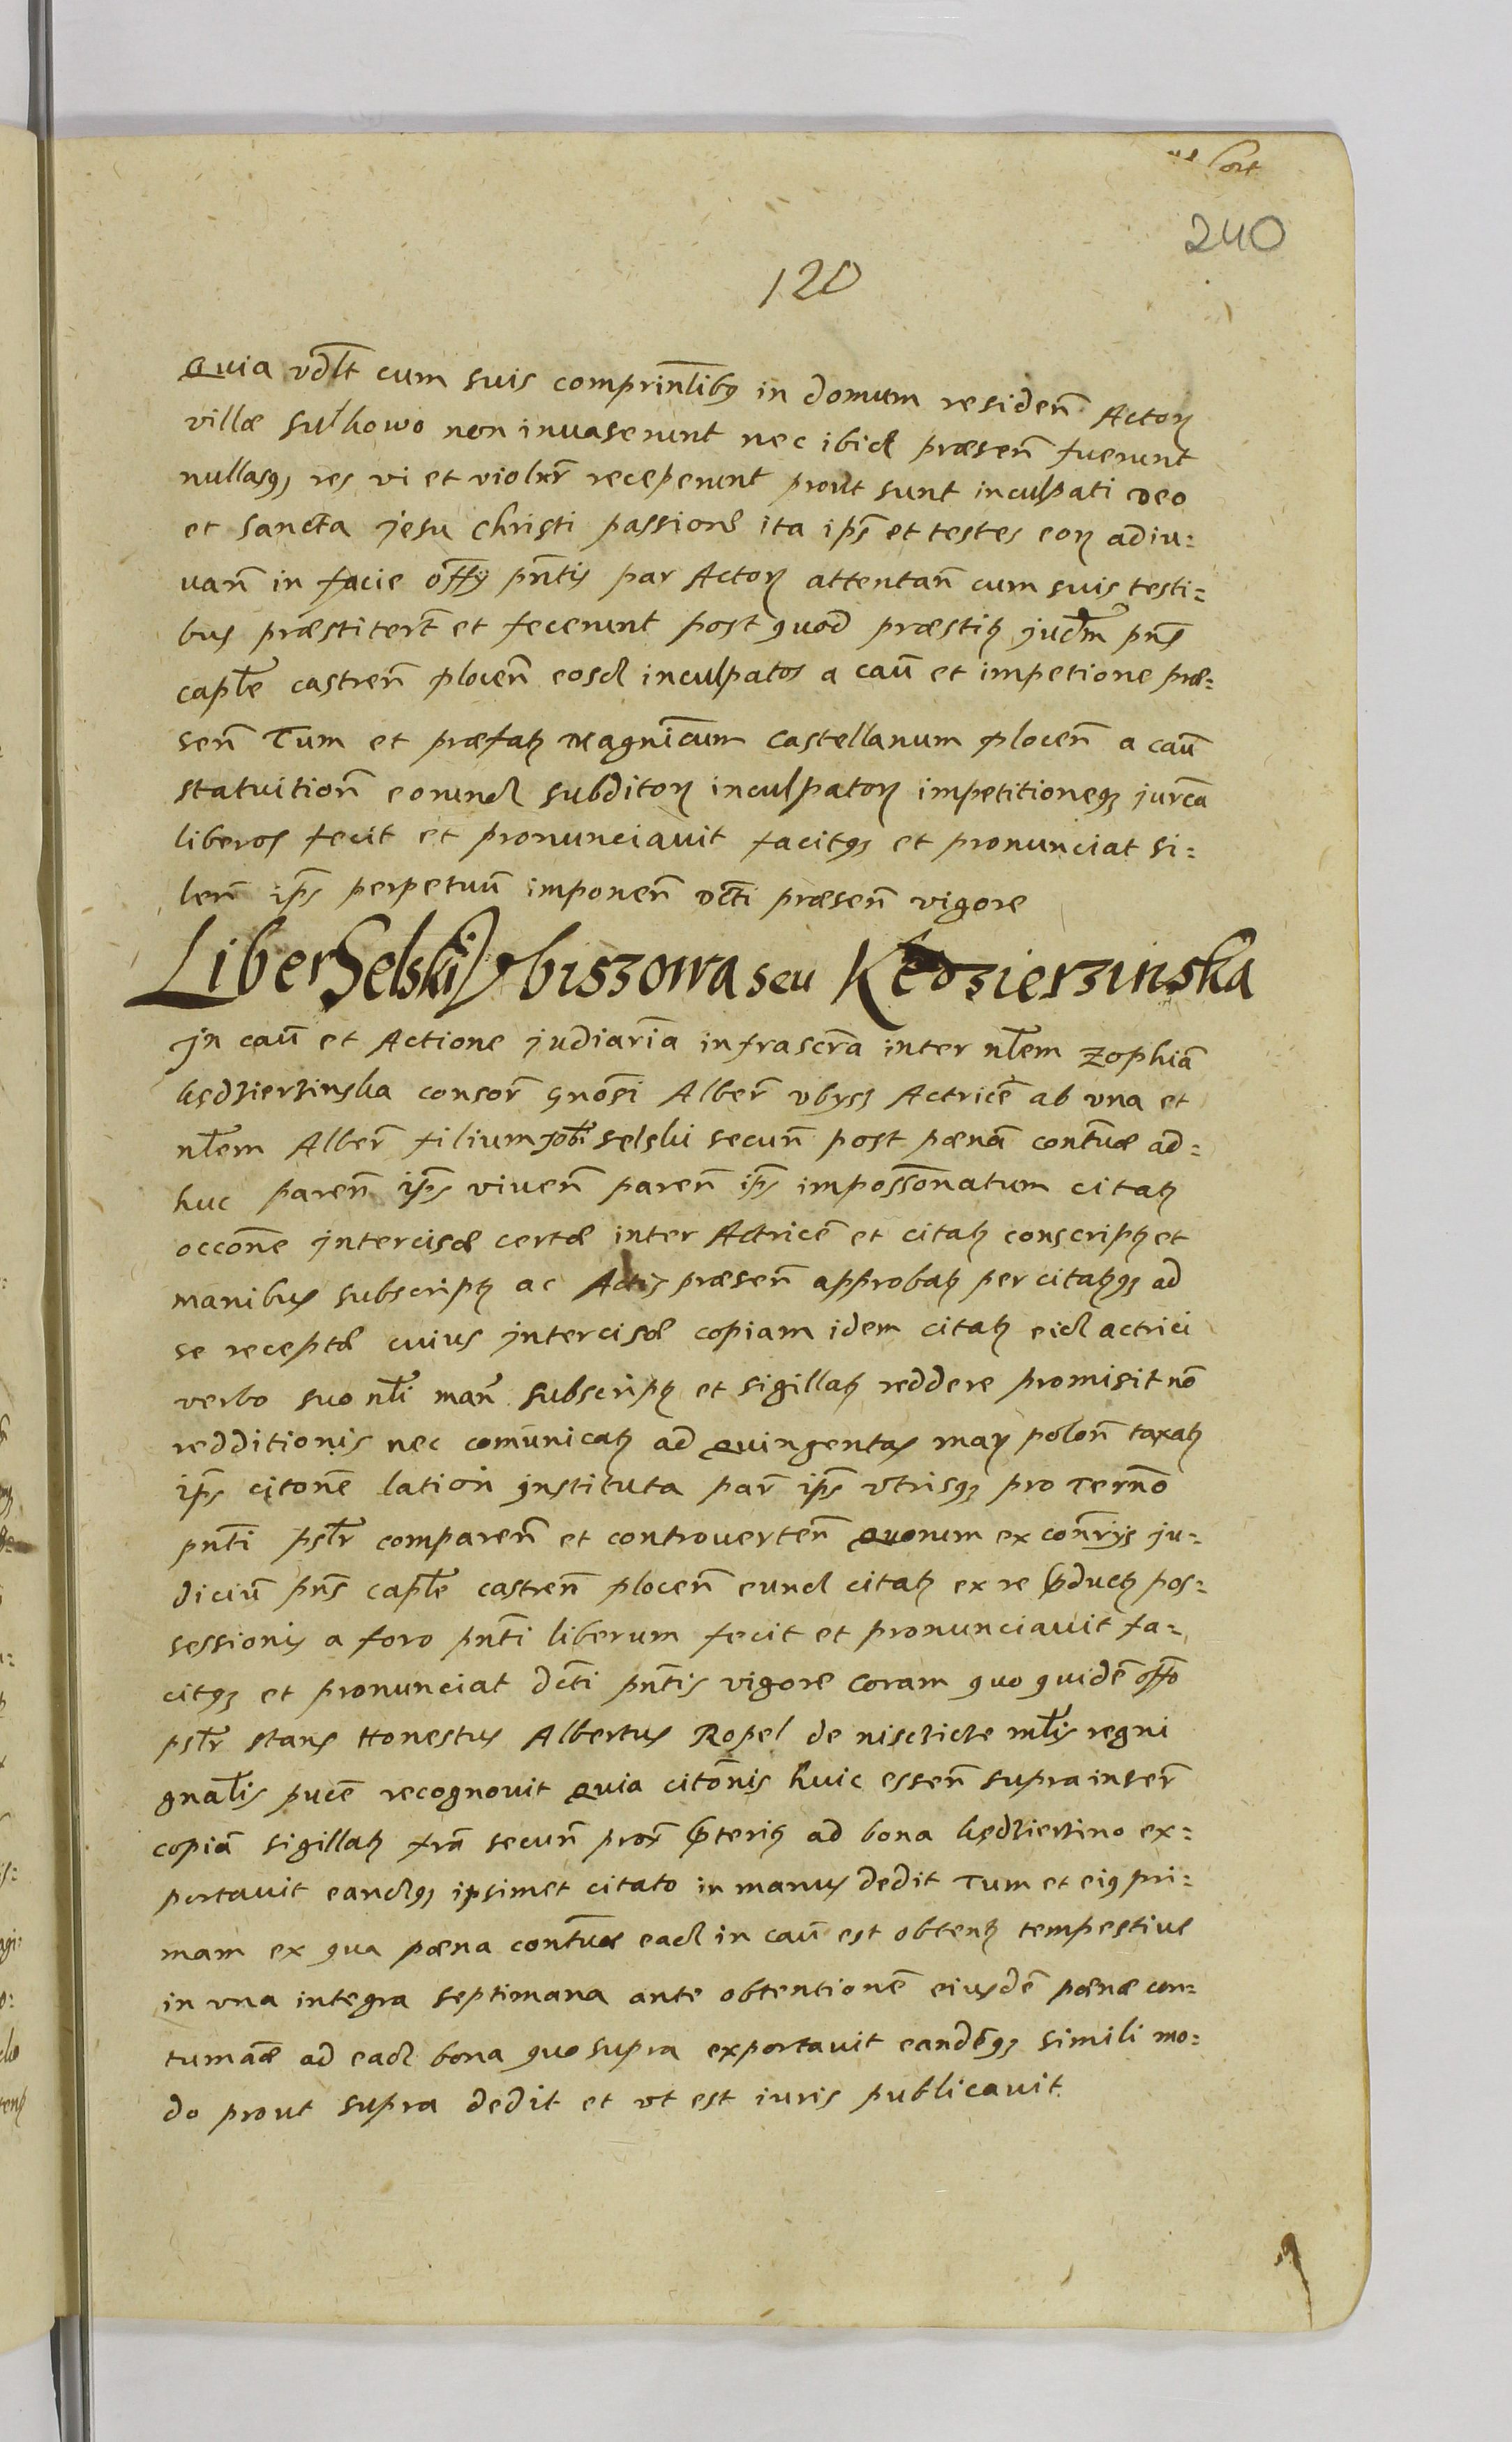 240
120
Quia vdlt cum suis comprintibus in domum residen Actor
villæ Sulkowo non invaserunt nec ibid præsen fuerunt
nullasq res vi et violnr receperunt prout sunt inculpati Deo
et Sancta Jesu Christi passione ita ips et testes eor adiu:
van in facie offy pntis par Actor attentan cum suis testi:
bus præstitert et fecerunt post quod præstit judm pns
caple castren plocen eosd inculpatos a cau et impetione præ:
sen Tum et præfat Magnicum Castellanum plocen a cau
statuition eorund subditor inculpator impetitioneq jurca
liberos fecit et pronunciavit facitq et pronunciat si:
len ips perpetuu imponen dcti præsen vigore
Liber Selski Vbiszowa seu Kedzierzinska
Jn cau et Actione judiaria infrascra inter nlem Zophia
kędzierzinska consor gnosi Alber vbysz Actrice ab vna et
nlem Alber filium nobi selski secun post pœna contuæ ad:
huc paren ips viven paren ips impossonatum citat
occone intercisæ certæ inter Actrice et citat conscript et
manibus subscript ac Actis præsen approbat per citatq ad
se receptæ cuius intercisæ copiam idem citat eid actrici
verbo suo nli man subscript et sigillat reddere promisit no
redditionis nec comunicat ad Quingentas mar polon taxat
ips citone lation instituta par ips vtrisq pro Termo
pnti pstr comparen et controverten Quorum ex conrys ju:
diciu pns caple castren plocen eund citat ex re pduct pos:
sessionis a foro pnti liberum fecit et pronunciavit fa:
citq et pronunciat dcti pntis vigore Coram quo quide offo
pstr stans Honestus Albertus Ropel de nisczicze mlis regni
gnalis puce recognovit Quia citonis huic essen supra inser
copia sigillat fra secun pror pterit ad bona kędzierzino ex:
portavit eandq ipsimet citato in manus dedit Tum et eiq pri:
mam ex qua pæna contuæ ead in cau est obtent tempestive
in vna integra septimana ante obtentione eiusde pænæ con:
tumaæ ad ead bona quo supra exportavit eandeq simili mo:
do prout supra dedit et vt est iuris publicavit